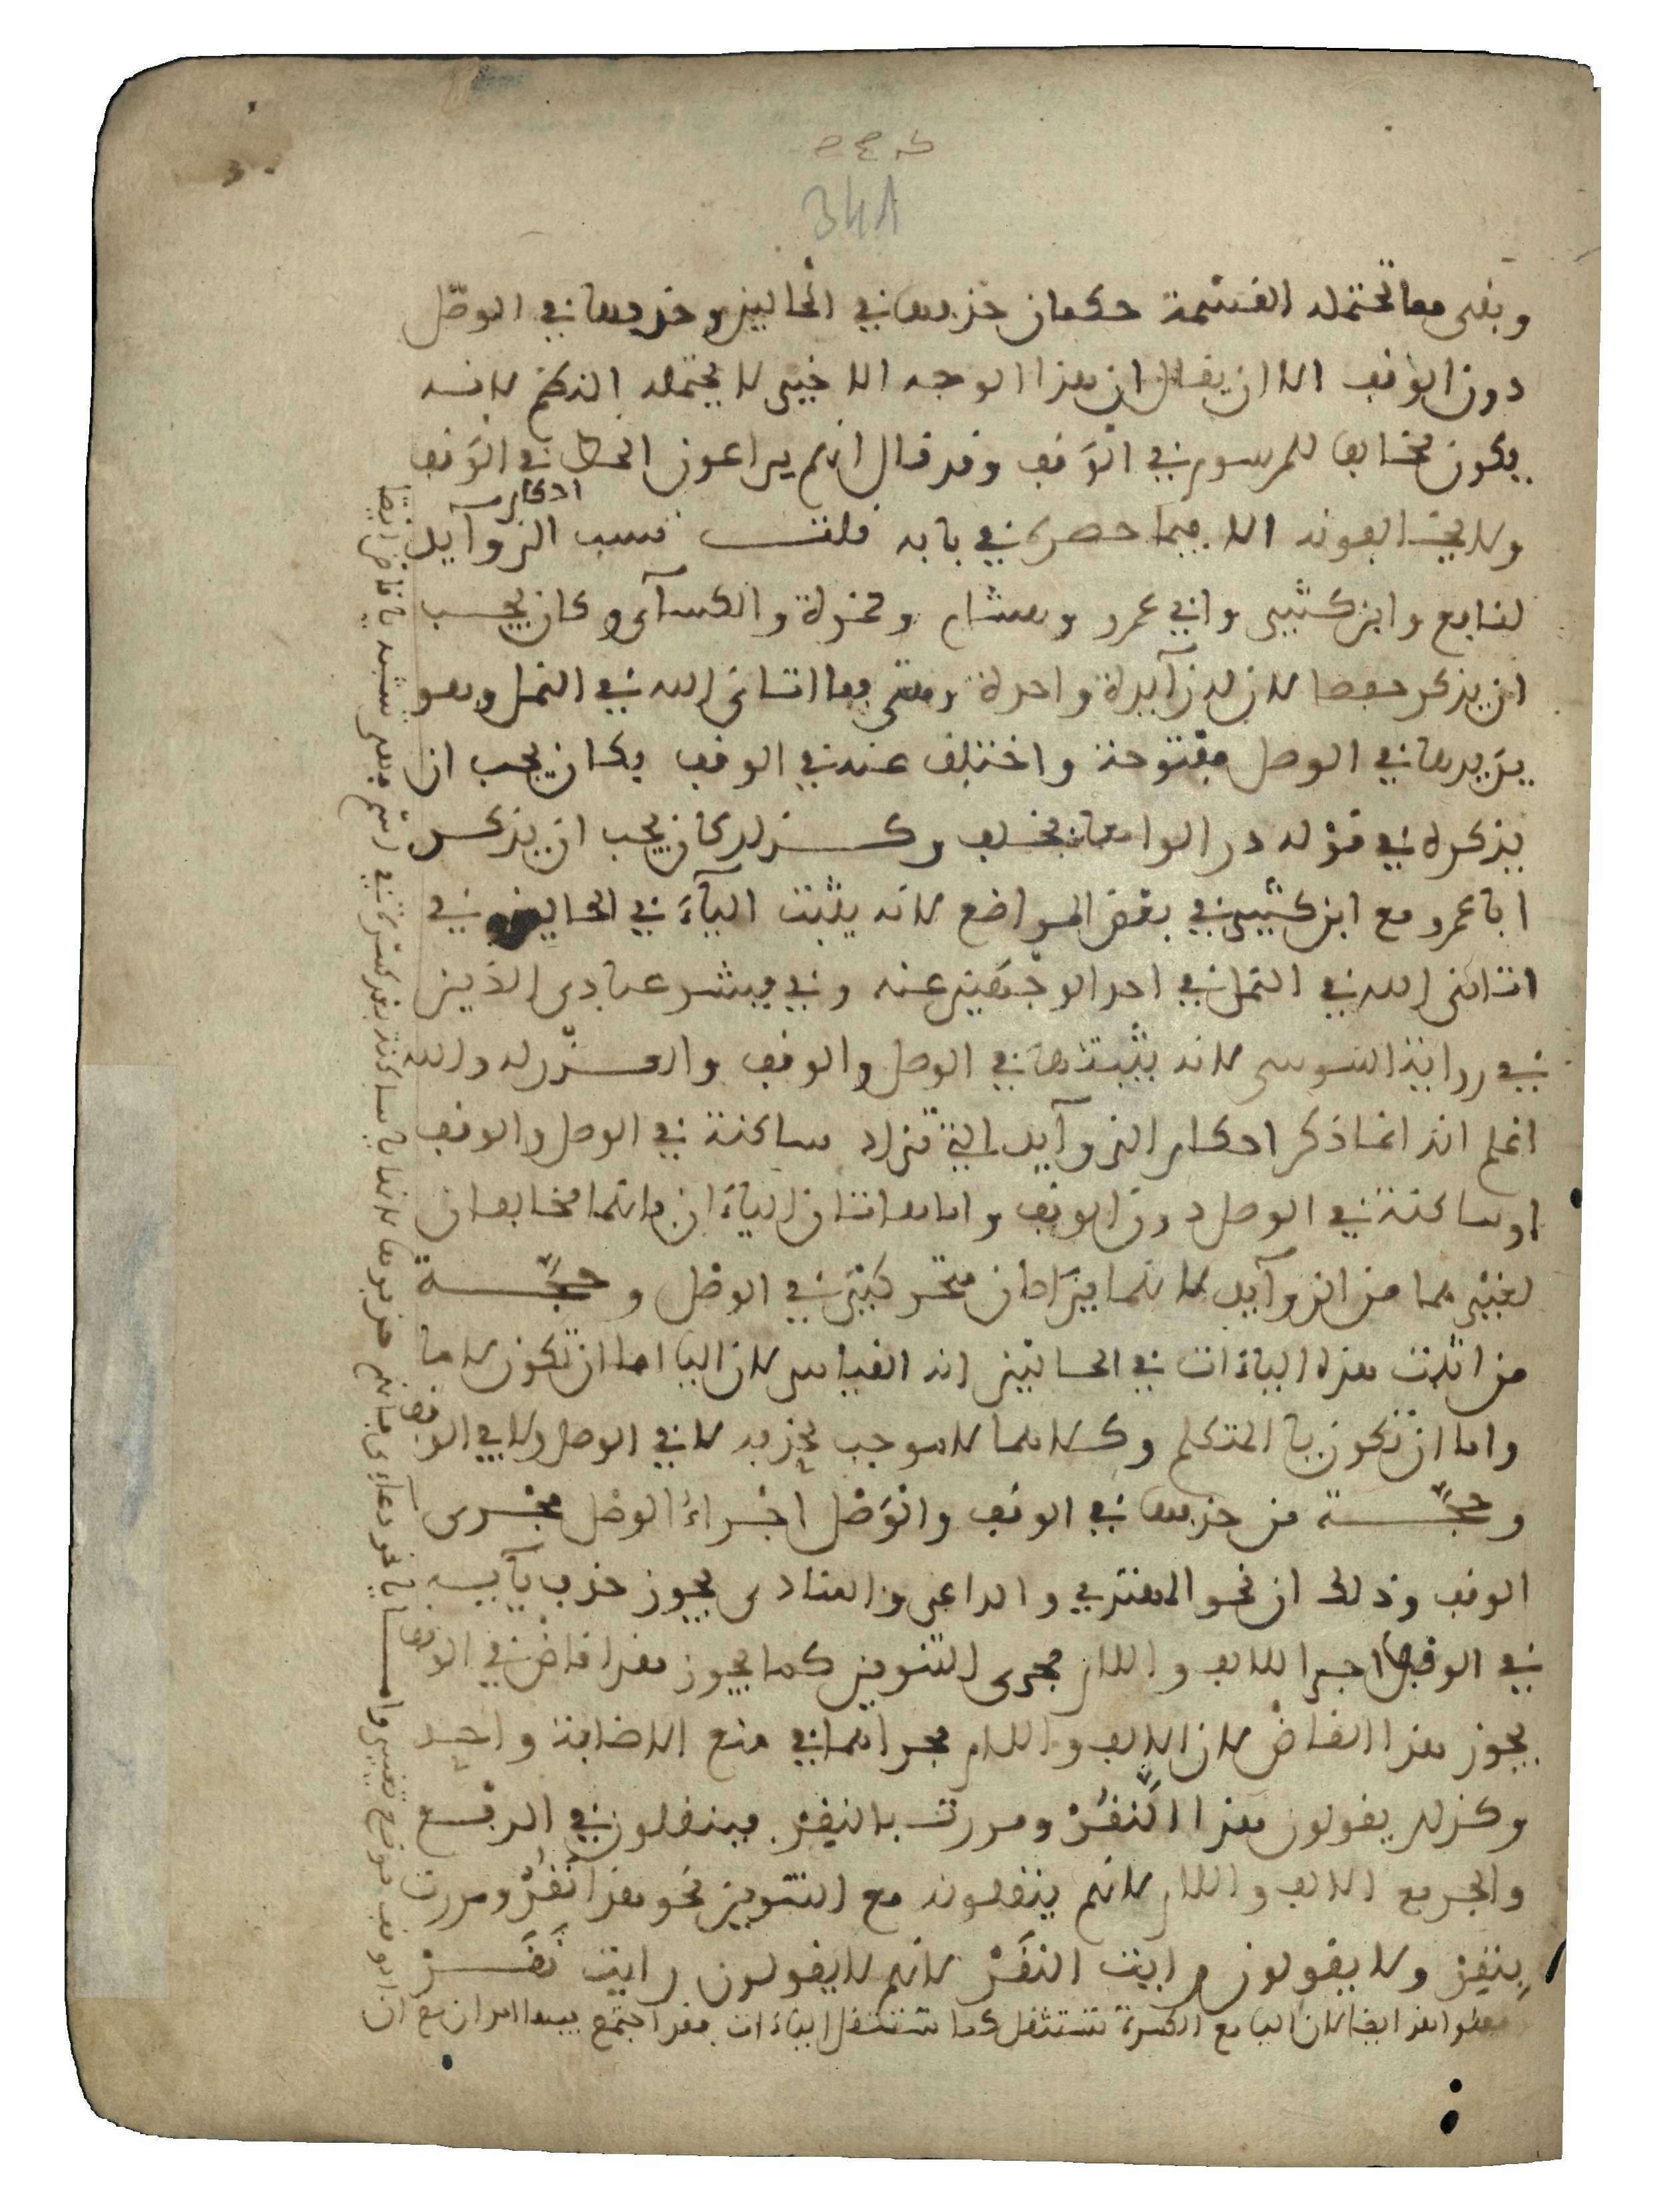 341
وبقى مما تحتمله القسمة حكمان حذفها في الحالين وحذفها في الوصل
دون الوقف الا ان يقال ان هذا الوجه الاخير لا يحتمله النظم لانه
يكون مخالفا للمرسوم في الوقف وقد قال انهم يراعون الخط في الوقف
ولا يخالفونه الا فيما حصره في بابه قلت نسب الزوآيد
لنافع وابن كثير وابي عمرو وهشام وحمزة والكسآي وكان يجب
ان يذكر حفصا لان له زآيدة واحدة وهي فما اتاني الله في النمل وهو
يزيدها في الوصل مفتوحة واختلف عنه في الوقف فكان يجب ان
يذكره في قوله درا لوامعا بخلف وكذلك كان يجب ان يذكر
ابا عمرو مع ابن كثير في بعض المواضع لانه يثبت اليآء في الحالين في
اتانى الله في النمل في احد الوجهين عنه وفي فبشر عبادي الذين
في رواية السوسي لانه يثبتها في الوصل والوقف والعذر له والله
اعلم انه انما ذكر احكام الزوآيد التي تزاد ساكنة في الوصل والوقف
او ساكنة في الوصل دون الوقف واما هاتان الياءان فانهما مخالفان
لغيرهما من الزوآيد لانهما يزادان متحركتين في الوصل وحجة
من اثبت هذه الياءات في الحالين انه القياس لان اليا اما ان تكون لاما
واما ان تكون يا المتكلم وكلاهما لا موجب لحذفه لا في الوصل ولا في الوقف
وحجة من حذفها في الوقف والوصل اجراء الوصل مجرى
الوقف وذلك ان نحو المهتدي والداعي والمنادي يجوز حذف يآيه
في الوقف اجرا للالف واللام مجرى التنوين كما يجوز هذا قاض في الوقف
يجوز هذا القاض لان الالف واللام مجراهما في منع الاضافة واحد
وكذلك يقولون هذا النقر ومررت بالنقر فينقلون في الرفع
والجر مع الالف واللام لانهم ينقلونه مع التنوين نحو هذا نقر ومررت
بنقر ولا يقولون رايت النقر لانهم لا يقولون رايت نقر
فعلوا هذا ايضا لان اليا مع الكسرة تستثقل كما تستثقل الياءات فقد اجتمع فيها امران مع ان